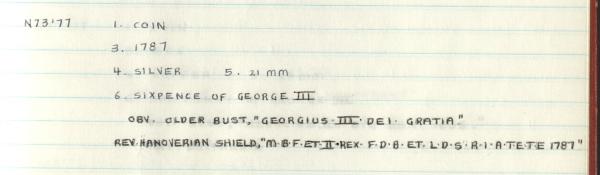 N73'77 1. COIN
3. 1787
4. SILVER 5. 21 mm
6. SIXPENCE OF GEORGE III
OBV. OLDER BUST, "GEORGIUS·III·DEI·GRATIA."
REV. HANOVERIAN SHIELD, "M·B·F·ET·H·REX·F·D·B·ET·L·D·S·R·I·A·TETE 1787"